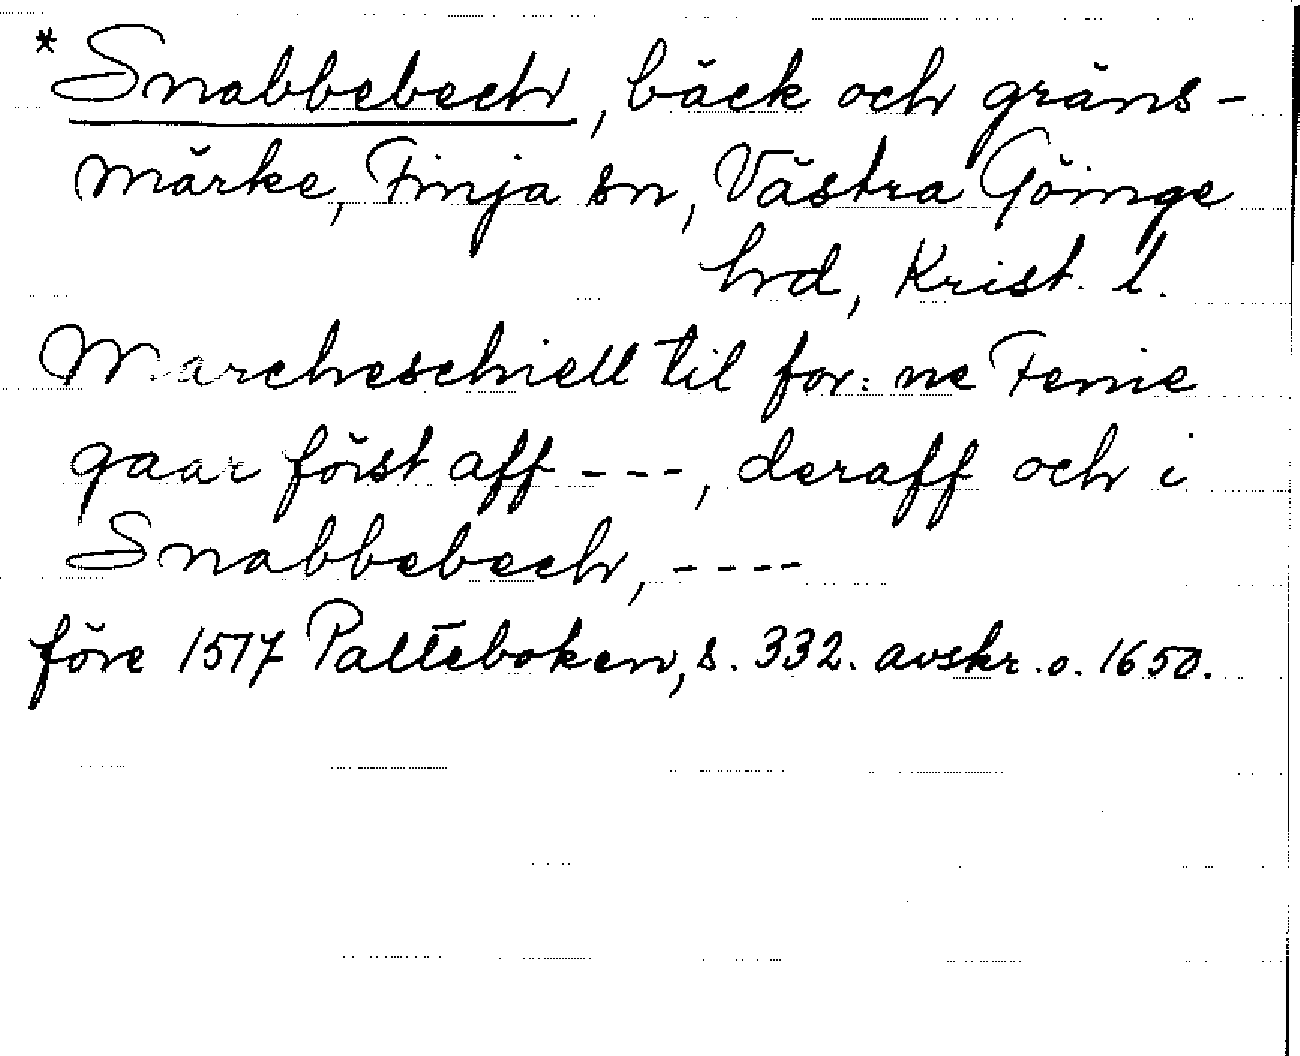 * Snabbebech, bäck och gräns-
märke, Finja sn, Västra Göinge
hrd, Krist. l.
Marcheschiell til for: ne Fenie
gaar först aff ---, deraff och i
Snabbebech, ----
före 1517 Palteboken, s. 332. avskr. o. 1650.